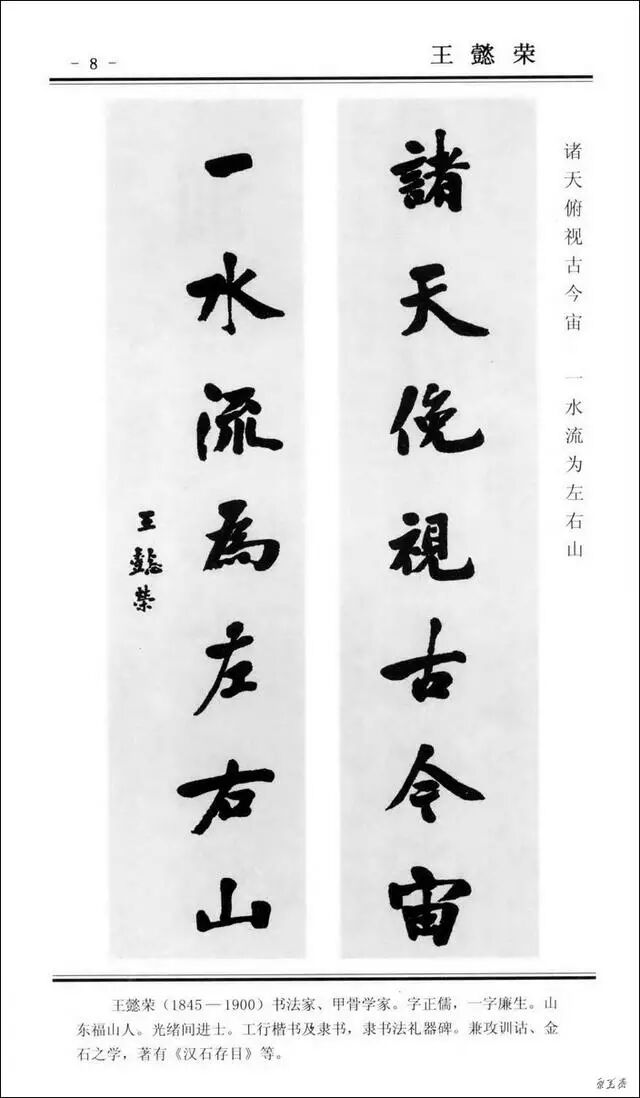 - 8 -
王懿荣
诸天俯视古今宙 一水流为左右山
諸天俛視古今宙
一水流為左右山
王懿榮
王懿荣（1845—1900）书法家、甲骨学家。字正儒，一字廉生。山
东福山人。光绪间进士。工行楷书及隶书，隶书法礼器碑。兼攻训诂、金
石之学，著有《汉石存目》等。